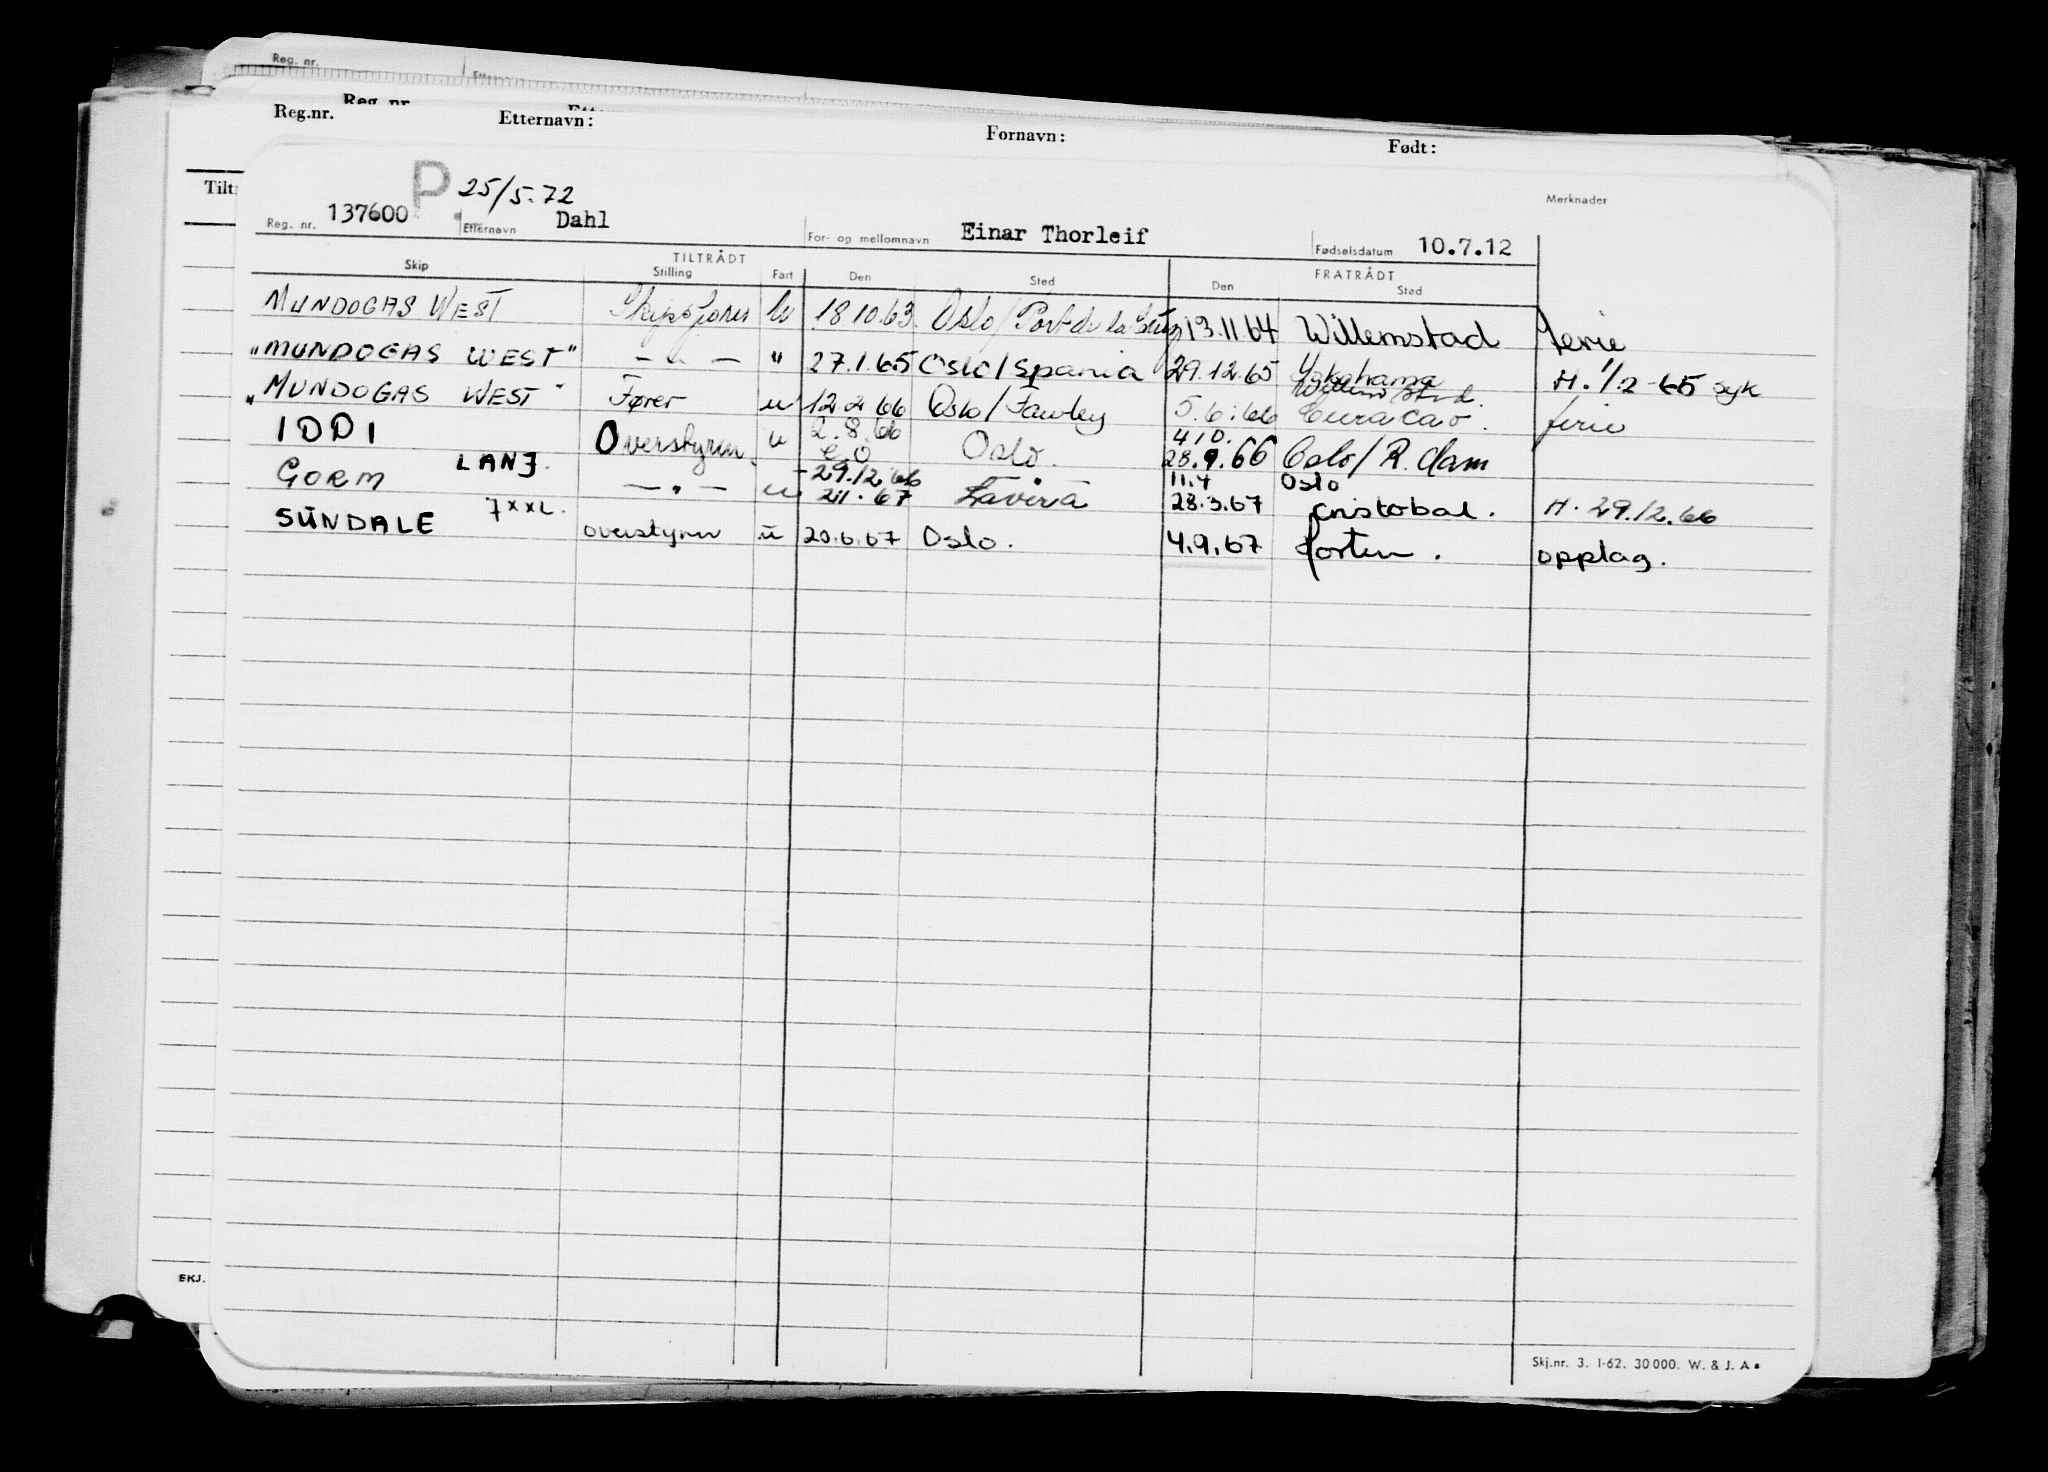 Reg. nr.
Reg. nr.
Reg.nr. Etternavn: Fornavn: Født:
Tilt
P 25/5.72
Merknader
Reg. nr. 137600 Etternavn Dahl For- og mellomnavn Einar Thorleif Fødselsdatum 10.7.12
TILTRÅDT FRATRÅDT
Skip Stilling Fart Den Sted Den Sted
MUNDOGAS WEST Skipsfører u 18.10.63. Oslo/Port de la 13.11 64 Willemstad ferie
"MUNDOGAS WEST" — " — " 27.1.65 Oslo/Spania 29.12.65 Yokohama H. 1/2-65 syk
"MUNDOGAS WEST" Fører u 12 2 66 Oslo/Fawley 5.6.66 Willemstad Curacao. ferie
IDDI LANJ. Overstyrm. u 2.8.66 Oslo. 4.10. 28.9.66 Oslo/R.dam
GORM 7XXL. — " — u 29.12.66 2.1.67 11.4 28.3.67 Oslo Cristobal. H. 29.12.66
SUNDALE overstyrm u 20.6.67 Oslo. 4.9.67 Horten. opplag.
SKJ.
Skj.nr. 3. 1-62. 30000. W. & J. A